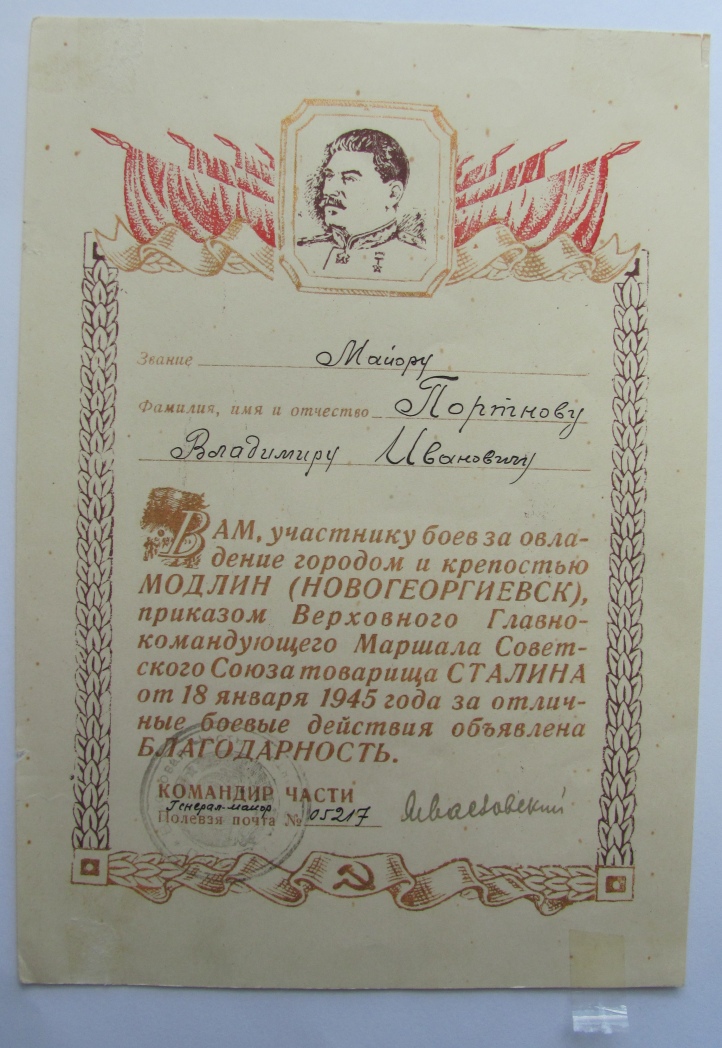 Звание Майору
Фамилия, имя и отчество Портнову
Владимиру Ивановичу
ВАМ, участнику боев за овла-
дение городом и крепостью
МОДЛИН (НОВОГЕОРГИЕВСК),
приказом Верховного Главно-
командующего Маршала Совет-
ского Союза товарища СТАЛИНА
от 18 января 1945 года за отлич-
ные боевые действия объявлена
БЛАГОДАРНОСТЬ.
КОМАНДИР ЧАСТИ
Генерал-майор
Полевая почта № 05217